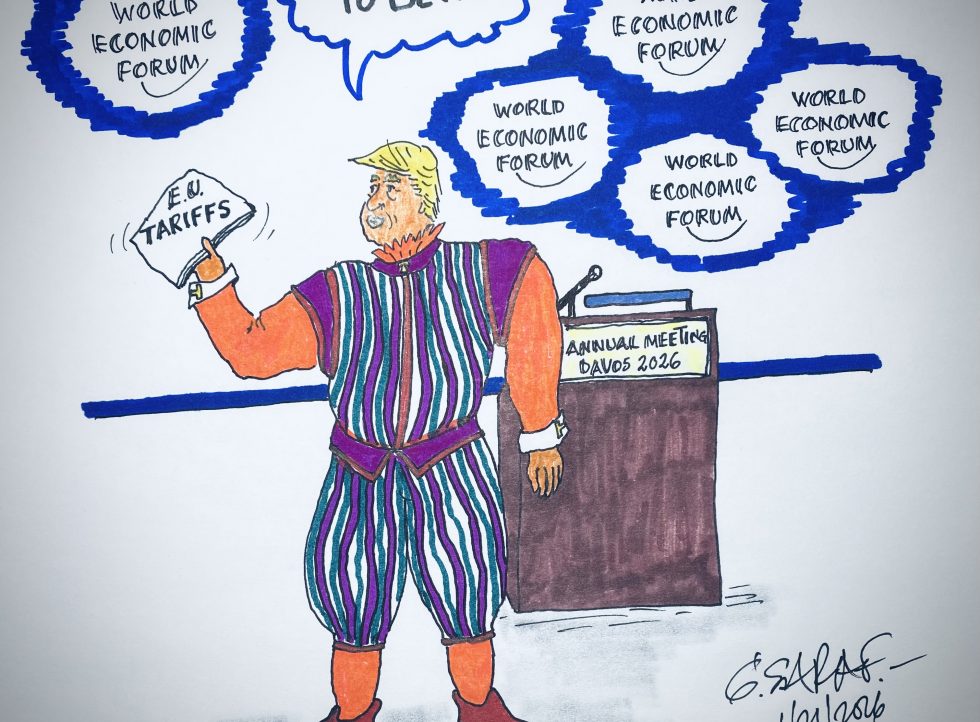 WORLD
ECONOMIC
FORUM
TO BE
ECONOMIC
FORUM
WORLD
ECONOMIC
FORUM
WORLD
ECONOMIC
FORUM
WORLD
ECONOMIC
FORUM
E.U.
TARIFFS
ANNUAL MEETING
DAVOS 2026
E. SARAF.
1/21/2026